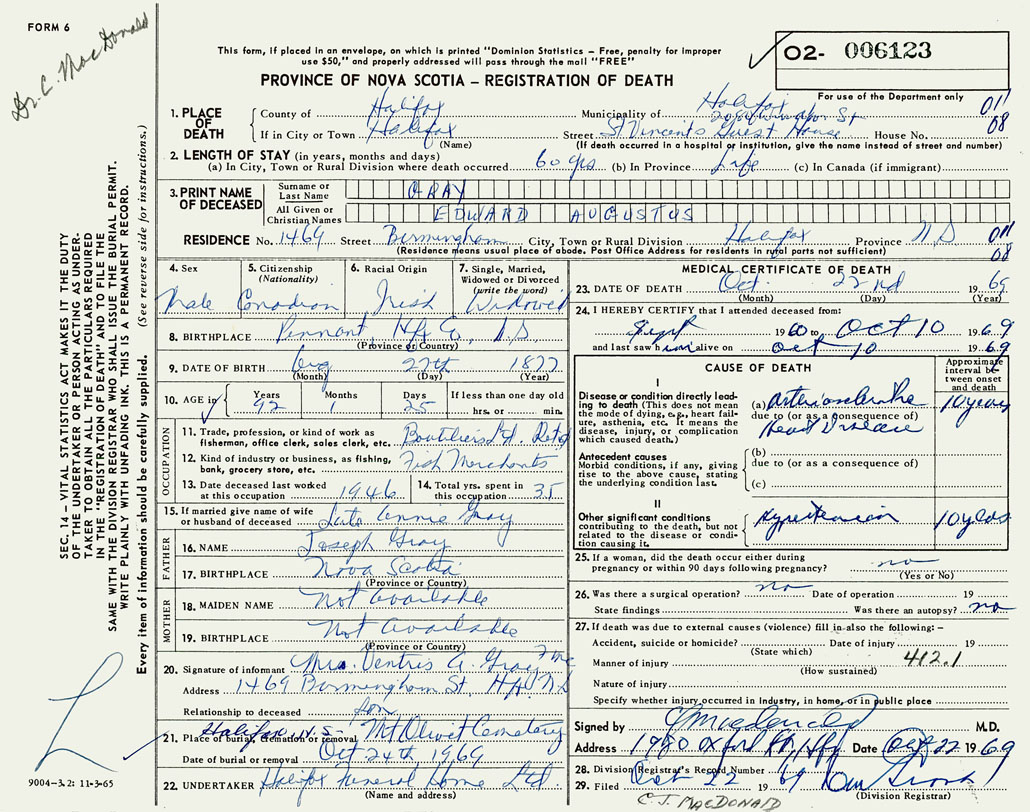 FORM 6
Dr. C. MacDonald
This form, if placed in an envelope, on which is printed "Dominion Statistics – Free, penalty for improper
use $50," and properly addressed will pass through the mail "FREE"
PROVINCE OF NOVA SCOTIA – REGISTRATION OF DEATH
02- 006123
For use of the Department only
011
08
1. PLACE OF DEATH
County of Halifax Municipality of Halifax
If in City or Town Halifax Street St Vincents Guest House House No.
(Name) (If death occurred in a hospital or institution, give the name instead of street and number)
2. LENGTH OF STAY (in years, months and days)
(a) In City, Town or Rural Division where death occurred 60 yrs (b) In Province Life (c) In Canada (if immigrant)
3. PRINT NAME OF DECEASED
Surname or Last Name GRAY
All Given or Christian Names EDWARD AUGUSTUS
RESIDENCE No. 1469 Street Birmingham City, Town or Rural Division Halifax Province N S 011
(Residence means usual place of abode. Post Office Address for residents in rural parts not sufficient) 08
4. Sex Male
5. Citizenship (Nationality) Canadian
6. Racial Origin Irish
7. Single, Married, Widowed or Divorced (write the word) Widowed
8. BIRTHPLACE Pennant Hfx Co, N.S.
(Province or Country)
9. DATE OF BIRTH Aug 27th 1877
(Month) (Day) (Year)
10. AGE in Years 92 Months 1 Days 25 If less than one day old hrs. or min.
OCCUPATION
11. Trade, profession, or kind of work as fisherman, office clerk, sales clerk, etc. Boutiliers Ltd. Retd
12. Kind of industry or business, as fishing, bank, grocery store, etc. Fish Merchants
13. Date deceased last worked at this occupation 1946
14. Total yrs. spent in this occupation 35
15. If married give name of wife or husband of deceased Late Annie Gray
FATHER
16. NAME Joseph Gray
17. BIRTHPLACE Nova Scotia
(Province or Country)
MOTHER
18. MAIDEN NAME Not Available
19. BIRTHPLACE Not Available
(Province or Country)
20. Signature of informant Mrs. Ventris A. Gray
Address 1469 Birmingham St, Hfx N S
Relationship to deceased son
21. Place of burial, cremation or removal Halifax N.S. Mt Olivet Cemetery
Date of burial or removal Oct 24th 1969
22. UNDERTAKER Halifax Funeral Home Ltd.
(Name and address)
MEDICAL CERTIFICATE OF DEATH
23. DATE OF DEATH Oct 22nd 1969
(Month) (Day) (Year)
24. I HEREBY CERTIFY that I attended deceased from:
Sept 1960 to Oct 10 1969
and last saw him alive on Oct 10 1969
CAUSE OF DEATH
Approximate interval between onset and death
I
Disease or condition directly leading to death (This does not mean the mode of dying, e.g., heart failure, asthenia, etc. It means the disease, injury, or complication which caused death.)
(a) Arteriosclerotic 10 years
due to (or as a consequence of)
Heart Disease
Antecedent causes
Morbid conditions, if any, giving rise to the above cause, stating the underlying condition last.
(b)
due to (or as a consequence of)
(c)
II
Other significant conditions contributing to the death, but not related to the disease or condition causing it.
Hypertension 10 years
25. If a woman, did the death occur either during pregnancy or within 90 days following pregnancy? no
(Yes or No)
26. Was there a surgical operation? no Date of operation 19
State findings Was there an autopsy? no
27. If death was due to external causes (violence) fill in also the following: –
Accident, suicide or homicide? Date of injury 19
(State which)
Manner of injury 412.1
(How sustained)
Nature of injury
Specify whether injury occurred in industry, in home, or in public place
Signed by C J MacDonald M.D.
Address 1980 Oxford St, Hfx Date Oct 22 1969
28. Division Registrar's Record Number
29. Filed Oct 22 1969
(Division Registrar)
C. J. MACDONALD
SEC. 14 – VITAL STATISTICS ACT MAKES IT THE DUTY
OF THE UNDERTAKER OR PERSON ACTING AS UNDER-
TAKER TO OBTAIN ALL THE PARTICULARS REQUIRED
IN THE "REGISTRATION OF DEATH" AND TO FILE THE
SAME WITH THE DIVISION REGISTRAR WHO SHALL ISSUE THE BURIAL PERMIT.
WRITE PLAINLY WITH UNFADING INK. THIS IS A PERMANENT RECORD.
Every item of information should be carefully supplied. (See reverse side for instructions.)
9004-3.2: 11-3-65